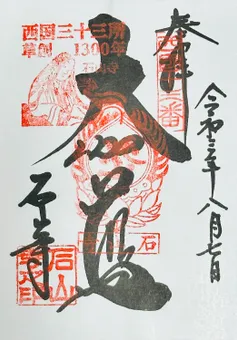 奉拝
令和三年八月七日
大伽藍
石山寺
西国三十三所
草創1300年
石山寺